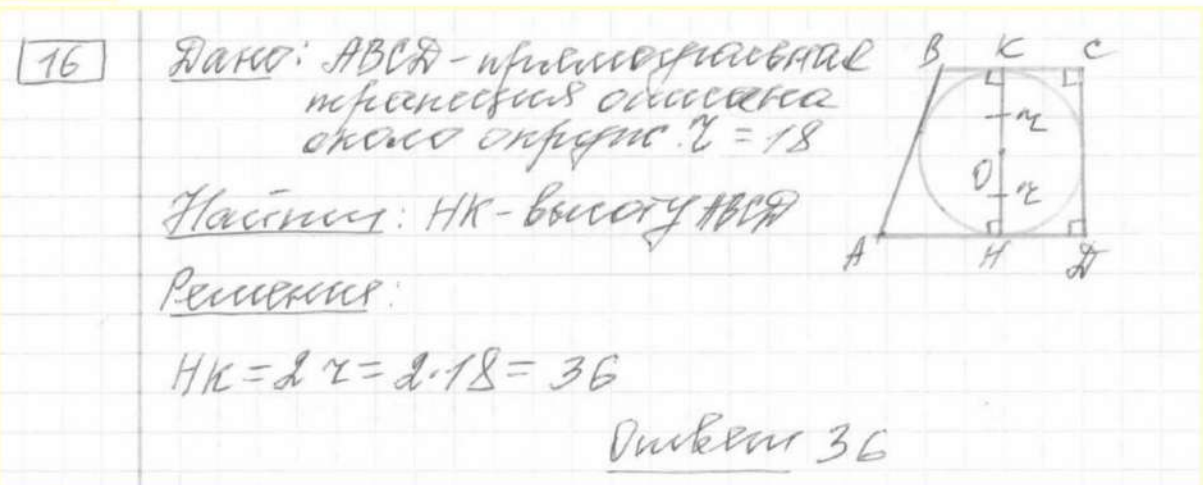 16
Дано: ABCD - прямоугольная
трапеция описана
около окруж. r = 18
Найти: HK - высоту ABCD
Решение:
HK = 2 r = 2·18 = 36
Ответ 36
B K C
r
O r
A H D